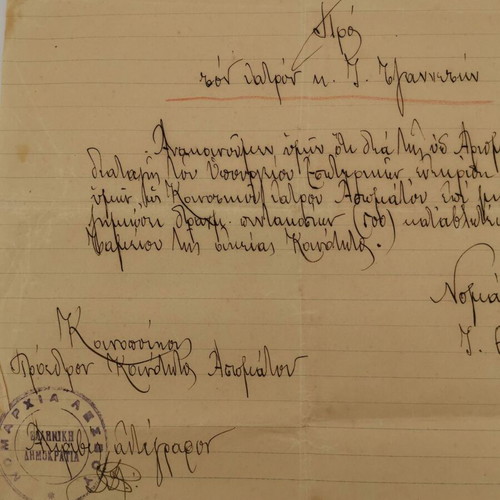 Πρός
τόν ἰατρόν κ. Ἰ. Τζαννετήν
Ἀνακοινοῦμεν ὑμῖν ὅτι διά τῆς ὑπ Ἀριθμ
διαταγῆς τοῦ Ὑπουργείου Ἐσωτερικῶν ἐνεκρίθη
ὑμῶν ὡς Κοινοτικοῦ ἰατροῦ Ἀσωμάτου ἐπί μη
δραχμ. πεντακοσίων (500) καταβλητέ
Ταμείου τῆς οἰκείας Κοινότητος.
Νομα
Ἰ.
Κοινοποίησις
Πρόεδρον Κοινότητος Ἀσωμάτου
Ἀκριβές ἀντίγραφον
ΝΟΜΑΡΧΙΑ ΛΕΣΒΟΥ
ΕΛΛΗΝΙΚΗ
ΔΗΜΟΚΡΑΤΙΑ